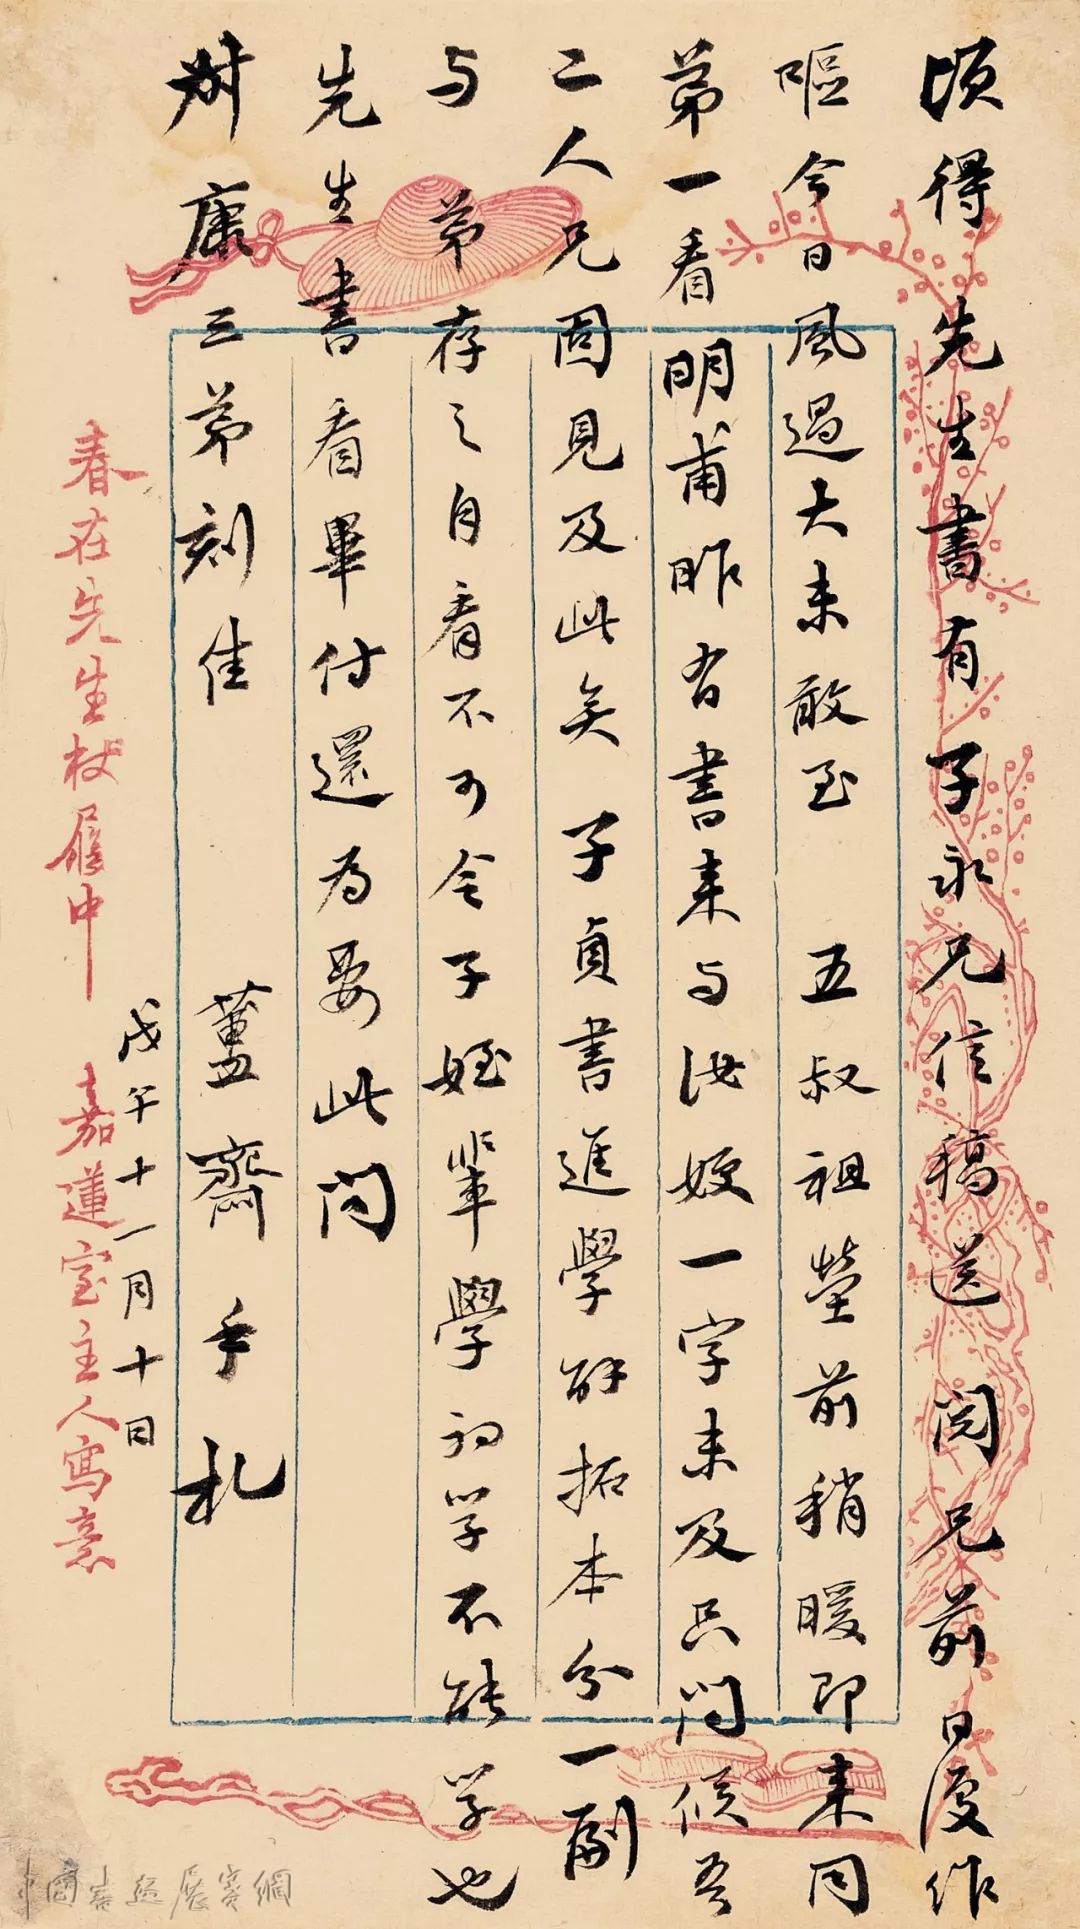 頃得先生書有子永兄信稿送閱兄前日復作
嘔今日風過大未敢至五叔祖塋前稍暖即來同
弟一看明甫昨有書來与汝姪一字未及只問候吾
二人兄固見及此矣子貞書進學解拓本分一副
与弟存之自看不可令子姪輩學初学不能学也
先生書看畢付還為要此問
卅康三弟刻佳簠齋手札
戊午十一月十日
春在先生杖履中嘉蓮室主人寫意
中國書法展賽網